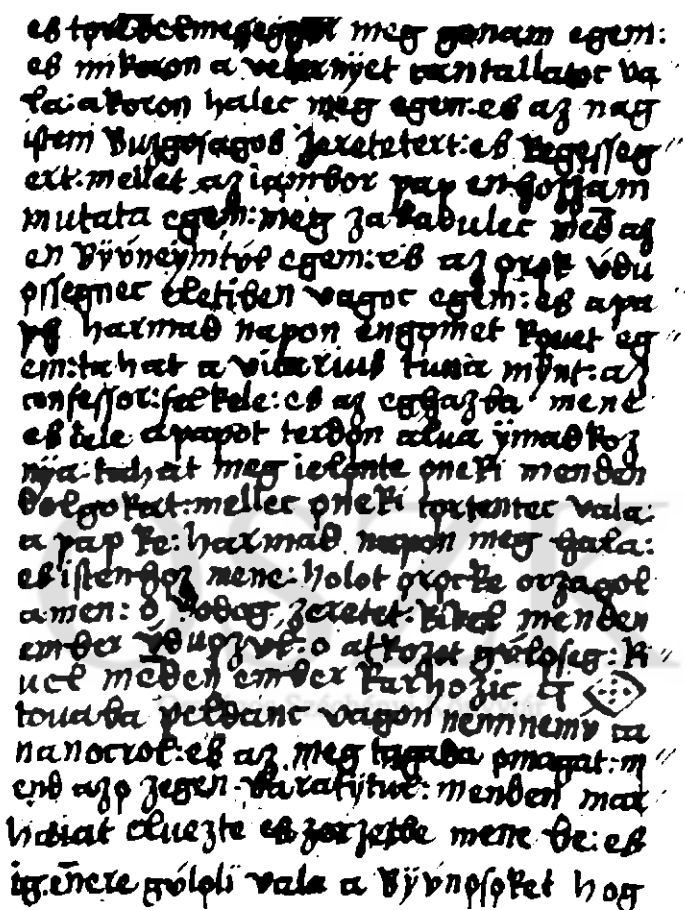 es meg gonam egem:
es mikoron a velernÿet tantallatoc va
la: akoron halec meg egem: es az nag
istem buzgosagos zeretetert: es kegosseg
ert: mellet az iambor pap enhozzam
mutata egem: meg zabadulec med az
en bÿvneÿmtvl egem: es az orok vdu
ossegnec eletiben vagoc egem: es a pa
ys harmad napon engomet kouet eg
em: tahat a vicarius tuna mÿnt: az
confessor: fel kele: es az eghazba mene
es lele a papot terdon alua ÿmadkoz
nÿa: tahat meg ielente oneki menden
dolgokat: mellec oneki tortentec vala:
a pap ke: harmad napon meg hala:
es istenhoz mene: holot orocke orzagol
amen: o bodog zeretet: kivel menden
ember vduozvl: o atkozot gvloseg: ki
uel meden ember karhozic et
touabba peldanc vagon nemnemv ta
nanocrol: es az meg tagada omagat: m
end azo zegen baratÿtvl: menden mar
haiat eluezte es zerzetbe mene be: es
ig. enere gvloli vala a bÿvnosoket hog